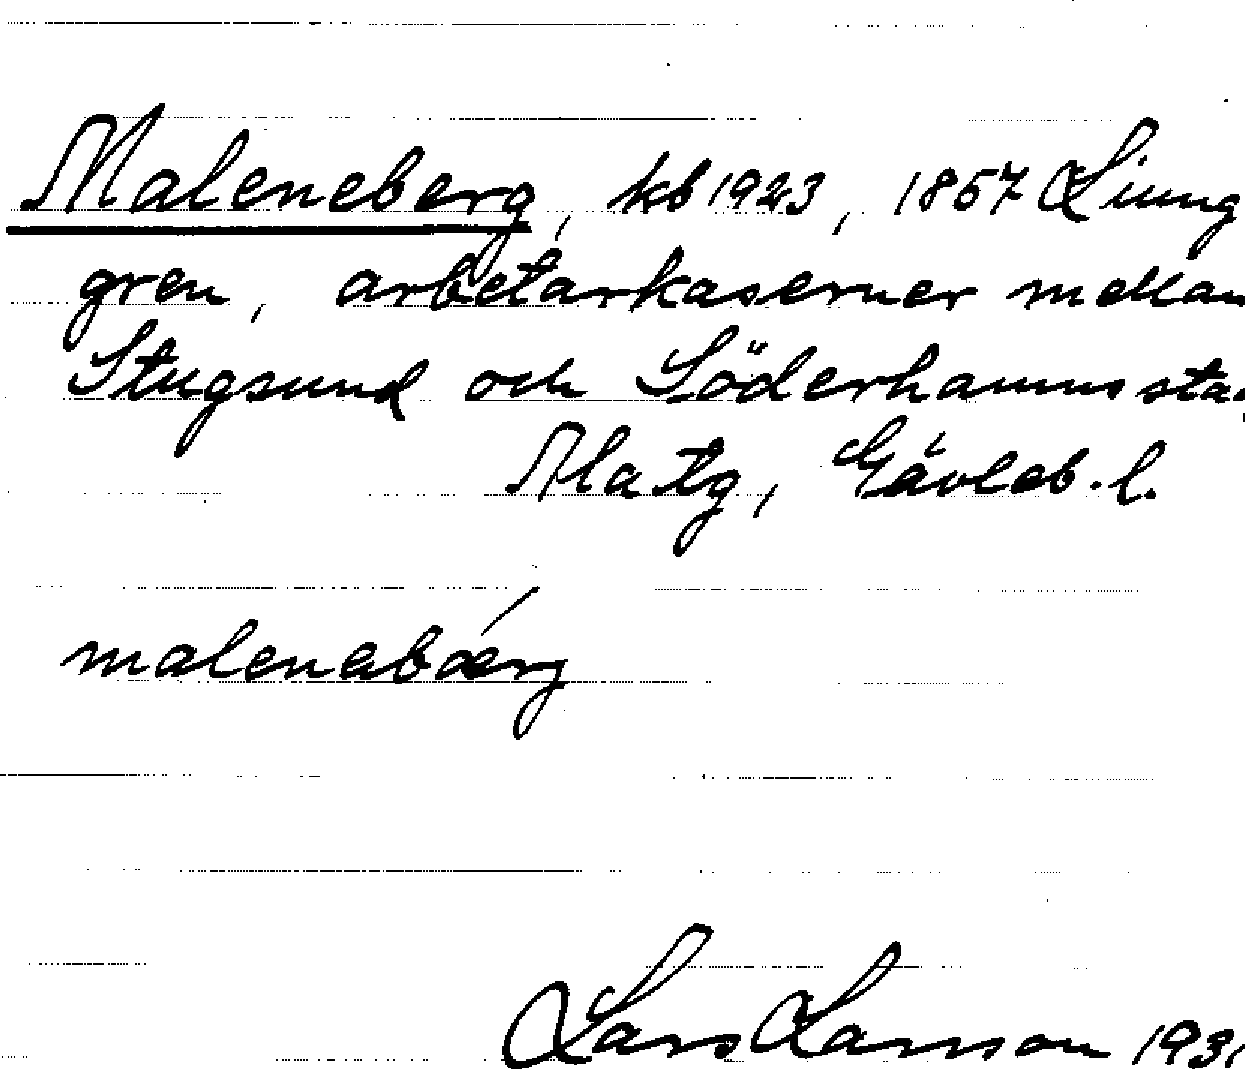 Maleneberg, kb 1923, 1857 Liung
gren, arbetarkaserner mellan
Stugsund och Söderhamns sta
Alatg, Gävleb. l.
malenabærg
Lars Larsson 193